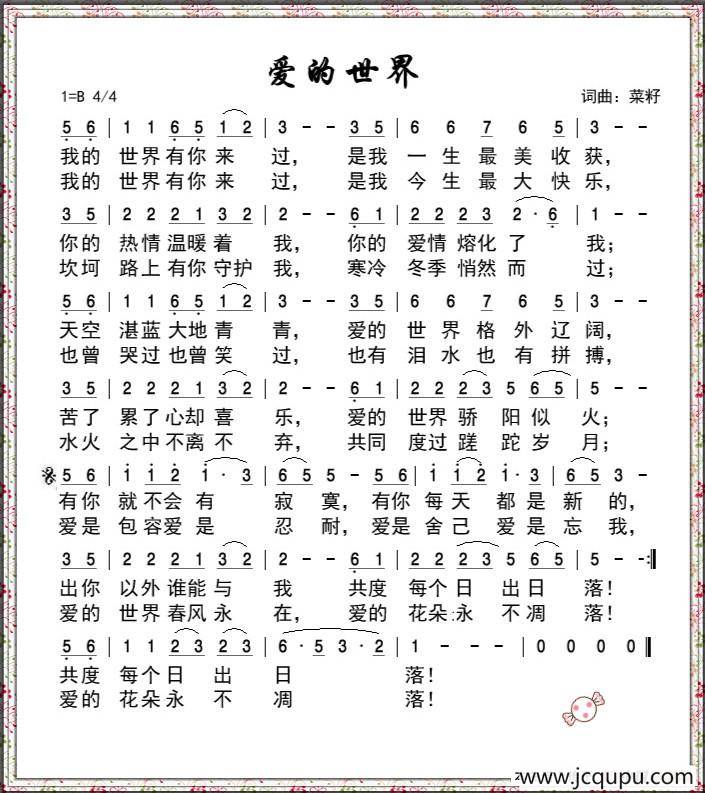 爱的世界
1=B 4/4 词曲：菜籽
5 6 | 1 1 6 5 1 2 | 3 - - 3 5 | 6 6 7 6 5 | 3 - -
我的 世界有你来 过， 是我 一生最美收获，
我的 世界有你来 过， 是我 今生最大快乐，
3 5 | 2 2 2 1 3 2 | 2 - - 6 1 | 2 2 2 3 2 · 6 | 1 - -
你的 热情温暖着 我， 你的 爱情熔化了 我；
坎坷 路上有你守护 我， 寒冷 冬季悄然而 过；
5 6 | 1 1 6 5 1 2 | 3 - - 3 5 | 6 6 7 6 5 | 3 - -
天空 湛蓝大地青 青， 爱的 世界格外辽阔，
也曾 哭过也曾笑 过， 也有 泪水也有拼搏，
3 5 | 2 2 2 1 3 2 | 2 - - 6 1 | 2 2 2 3 5 6 5 | 5 - -
苦了 累了心却喜 乐， 爱的 世界骄阳似火；
水火 之中不离不 弃， 共同 度过蹉跎岁月；
5 6 | 1 1 2 1 · 3 | 6 5 5 - 5 6 | 1 1 2 1 · 3 | 6 5 3 -
有你 就不会有 寂寞，有你 每天都是新的，
爱是 包容爱是 忍耐，爱是 舍己爱是忘我，
3 5 | 2 2 2 1 3 2 | 2 - - 6 1 | 2 2 2 3 5 6 5 | 5 - - :||
出你 以外谁能与 我 共度 每个日出日 落！
爱的 世界春风永 在， 爱的 花朵永不凋 落！
5 6 | 1 1 2 3 2 3 | 6 · 5 3 · 2 | 1 - - - | 0 0 0 0 ||
共度 每个日出 日 落！
爱的 花朵永不 凋 落！
www.jcqupu.com